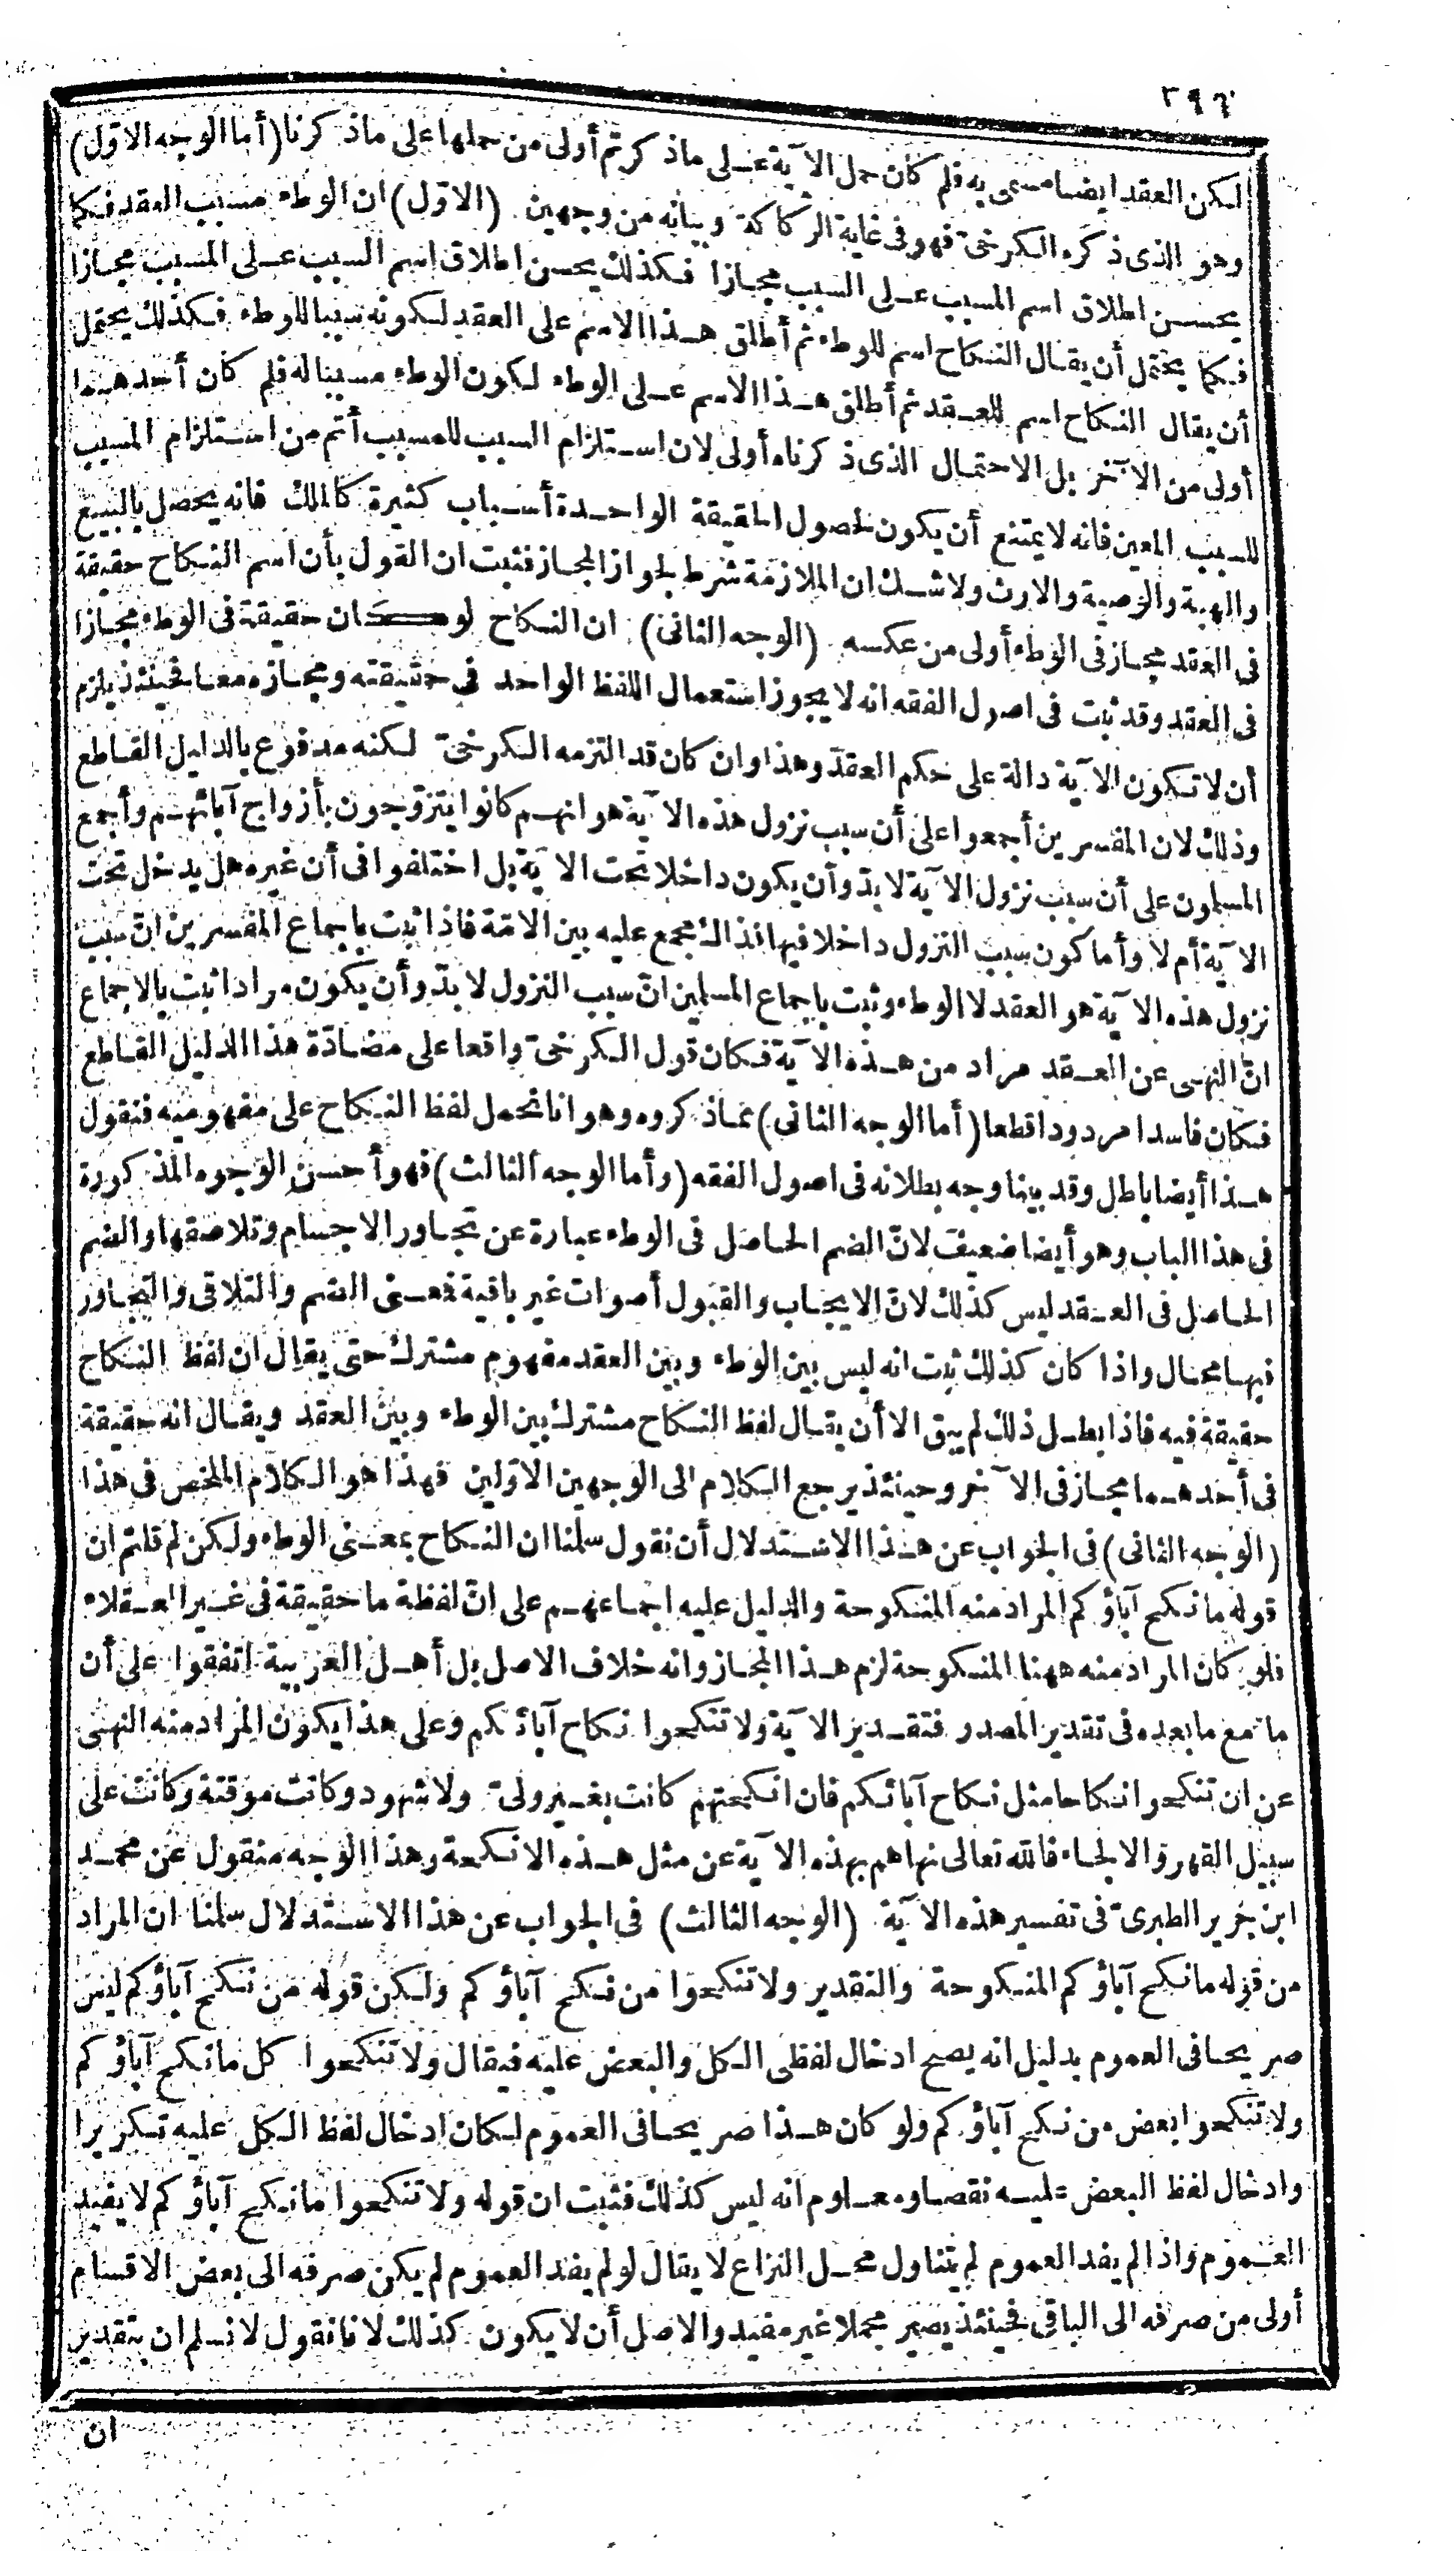 ٢٩٦
لكن العقد ايضا مسمى به فلم كان حمل الآية على ماذكرتم أولى من حملها على ماذكرنا (أما الوجه الاوّل)
وهو الذى ذكره الكرخىّ فهو فى غاية الركاكة وبيانه من وجهين (الاوّل) ان الوطء مسبب العقد فكما
يحسن اطلاق اسم المسبب على السبب مجازا فكذلك يحسن اطلاق اسم السبب على المسبب مجازا
فكما يحتمل أن يقال النكاح اسم للوطء ثم أطلق هذا الاسم على العقد لكونه سببا للوطء فكذلك يحتمل
أن يقال النكاح اسم للعقد ثم أطلق هذا الاسم على الوطء لكون الوطء مسببا له فلم كان أحدهما
أولى من الآخر بل الاحتمال الذى ذكرناه أولى لان استلزام السبب للمسبب أتم من استلزام المسبب
للسبب المعين فانه لا يمتنع أن يكون لحصول الحقيقة الواحدة أسباب كثيرة كالملك فانه يحصل بالبيع
والهبة والوصية والارث ولا شك ان الملازمة شرط لجواز المجاز فثبت ان القول بأن اسم النكاح حقيقة
فى العقد مجاز فى الوطء أولى من عكسه (الوجه الثانى) ان النكاح لو كان حقيقة فى الوطء مجازا
فى العقد وقد ثبت فى اصول الفقه انه لا يجوز استعمال اللفظ الواحد فى حقيقته ومجازه معا فحينئذ يلزم
أن لا تكون الآية دالة على حكم العقد وهذا وان كان قد التزمه الكرخىّ لكنه مدفوع بالدليل القاطع
وذلك لان المفسرين أجمعوا على أن سبب نزول هذه الآية هو انهم كانوا يتزوّجون بأزواج آبائهم وأجمع
المسلمون على أن سبب نزول الآية لا بدّ وأن يكون داخلا تحت الآية بل اختلفوا فى أن غيره هل يدخل تحت
الآية أم لا وأما كون سبب النزول داخلا فيها فذاك مجمع عليه بين الامّة فاذا ثبت باجماع المفسرين انّ سبب
نزول هذه الآية هو العقد لا الوطء وثبت باجماع المسلمين انّ سبب النزول لا بدّ وأن يكون مرادا ثبت بالاجماع
انّ النهى عن العقد مراد من هذه الآية فكان قول الكرخىّ واقعا على مضادّة هذا الدليل القاطع
فكان فاسدا مردودا قطعا (أما الوجه الثانى) مماذكروه وهو انا نحمل لفظ النكاح على مفهوميه فنقول
هذا أيضا باطل وقد بينا وجه بطلانه فى اصول الفقه (وأما الوجه الثالث) فهو أحسن الوجوه المذكورة
فى هذا الباب وهو أيضا ضعيف لانّ الضم الحاصل فى الوطء عبارة عن تجاور الاجسام وتلاصقها والضم
الحاصل فى العقد ليس كذلك لانّ الايجاب والقبول أصوات غير باقية فمعنى الضم والتلاقى والتجاور
فيها محال واذا كان كذلك ثبت انه ليس بين الوطء وبين العقد مفهوم مشترك حتى يقال ان لفظ النكاح
حقيقة فيه فاذا بطل ذلك لم يبق الا أن يقال لفظ النكاح مشترك بين الوطء وبين العقد ويقال انه حقيقة
فى أحدهما مجاز فى الآخر وحينئذ يرجع الكلام الى الوجهين الاوّلين فهذا هو الكلام الملخص فى هذا
(الوجه الثانى) فى الجواب عن هذا الاستدلال أن نقول سلمنا ان النكاح بمعنى الوطء ولكن لم قلتم ان
قوله مانكح آباؤكم المراد منه المنكوحة والدليل عليه اجماعهم على انّ لفظة ما حقيقة فى غير العقلاء
فلو كان المراد منه ههنا المنكوحة لزم هذا المجاز وانه خلاف الاصل بل أهل العربية اتفقوا على أن
ما مع مابعده فى تقدير المصدر فتقدير الآية ولا تنكحوا نكاح آبائكم وعلى هذا يكون المراد منه النهى
عن ان تنكحوا نكاحا مثل نكاح آبائكم فان انكحتهم كانت بغير ولىّ ولا شهود وكانت موقتة وكانت على
سبيل القهر والالجاء فالله تعالى نهاهم بهذه الآية عن مثل هذه الانكحة وهذا الوجه منقول عن محمد
ابن جرير الطبرىّ فى تفسير هذه الآية (الوجه الثالث) فى الجواب عن هذا الاستدلال سلمنا ان المراد
من قوله مانكح آباؤكم المنكوحة والتقدير ولا تنكحوا من نكح آباؤكم ولكن قوله من نكح آباؤكم ليس
صريحا فى العموم بدليل انه يصح ادخال لفظى الكل والبعض عليه فيقال ولا تنكحوا كل مانكح آباؤكم
ولا تنكحوا بعض من نكح آباؤكم ولو كان هذا صريحا فى العموم لكان ادخال لفظ الكل عليه تكريرا
وادخال لفظ البعض عليه نقصا ومعلوم انه ليس كذلك فثبت ان قوله ولا تنكحوا مانكح آباؤكم لا يفيد
العموم واذا لم يفد العموم لم يتناول محل النزاع لا يقال لو لم يفد العموم لم يكن صرفه الى بعض الاقسام
أولى من صرفه الى الباقى فحينئذ يصير مجملا غير مفيد والاصل أن لا يكون كذلك لانا نقول لا نسلم ان بتقدير
ان